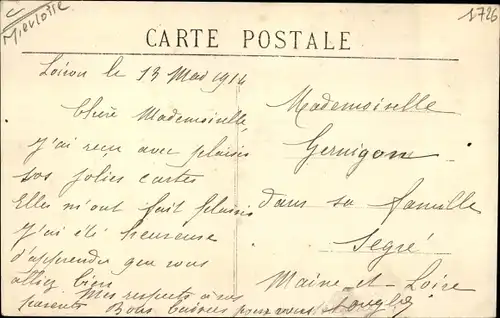 Mervoise
1726
CARTE POSTALE
Loiron le 13 Mai 1914
Chère Mademoiselle,
J'ai reçu avec plaisir
vos jolies cartes
Elles m'ont fait plaisir
J'ai été heureuse
d'apprendre que vous
alliez bien
Mes respects à vos
parents Bons baisers pour vous
Mademoiselle
Gernigon
dans sa famille
Segré
Maine-et-Loire